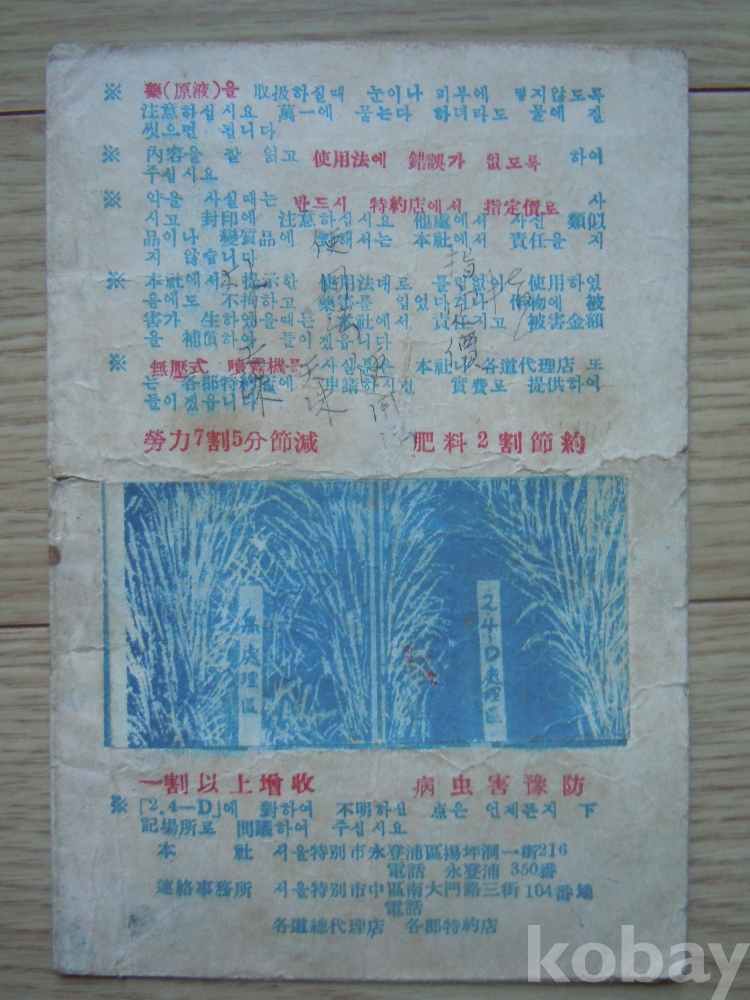 ※ 藥(原液)을 取扱하실때 눈이나 피부에 닿지않도록
注意하십시요 萬一에 묻는다 하더라도 물에 씻
씻으면 됩니다
※ 內容을 잘 읽고 使用法에 錯誤가 없도록 하여
주십시요
※ 약을 사실때는 반드시 特約店에서 指定價로 사
시고 封印에 注意하십시요 他處에서 사신 類似
品이나 變質品에 對해서는 本社에서 責任을 지
지 않습니다
※ 本社에서 提示한 使用法대로 틀림없이 使用하였
을에도 不拘하고 藥害를 입었다거나 作物에 被
害가 生하였을때는 本社에서 責任지고 被害金額
을 補償하여 들이겠읍니다
※ 無壓式 噴霧機를 사실분은 本社나 各道代理店 또
는 各郡特約店에 申請하시면 實費로 提供하여
들이겠읍니다
勞力7割5分節減 肥料2割節約
無處理區
2 4 D 處理區
一割以上增收 病虫害豫防
※ 「2.4—D」에 對하여 不明하신 点은 언제든지 下
記場所로 問議하여 주십시요
本社 서울特別市永登浦區揚坪洞一街216
電話 永登浦 350番
連絡事務所 서울特別市中區南大門路三街104番地
電話
各道總代理店 各郡特約店
指定價
使用法
kobay